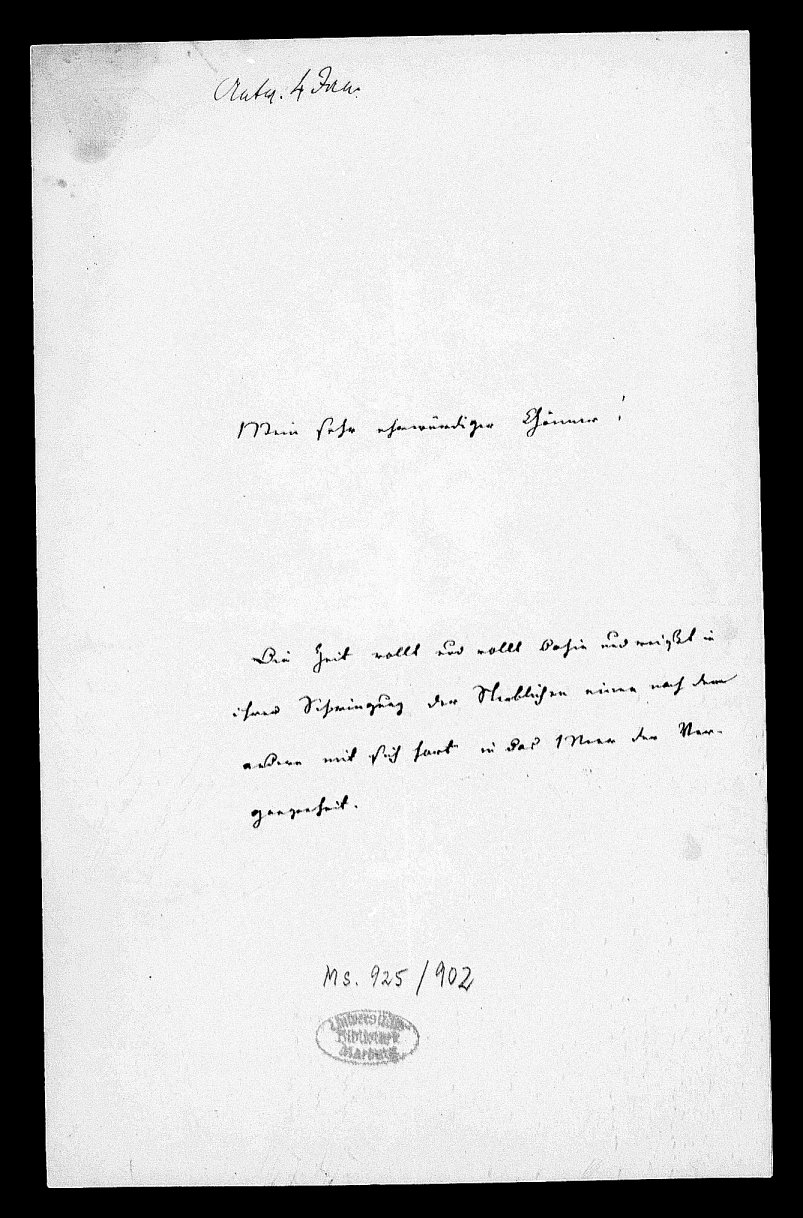 Antw. 4 Jan.
Mein sehr ehrwürdiger Gönner!
Die Zeit rollt und rollt dahin und reißt in
ihrer Schwingung der Sterblichen einen nach dem
andern mit sich fort in das Meer der Ver-
gangenheit.
Ms. 925/902
Universitäts-
Bibliothek
Marburg